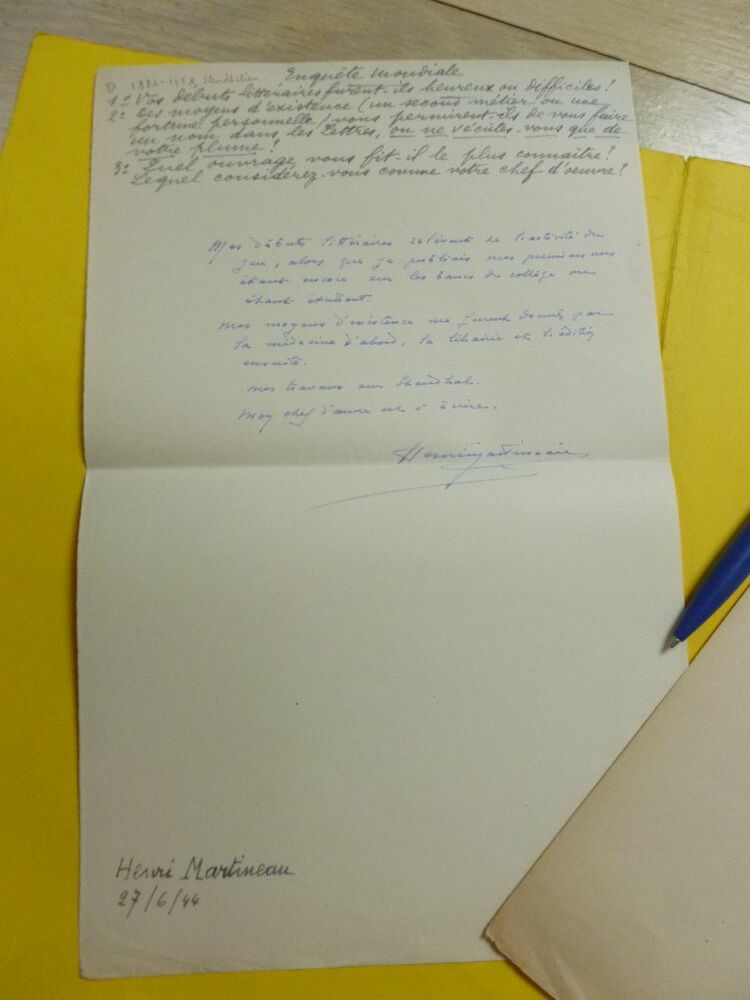 1882-1958, Stendhalien
Enquête Mondiale
1º Vos débuts littéraires furent-ils heureux ou difficiles?
2º Les moyens d'existence (un second métier ou une
fortune personnelle) vous permirent-ils de vous faire
un nom dans les Lettres, ou ne vécûtes-vous que de
votre plume?
3º Quel ouvrage vous fit-il le plus connaître?
Lequel considérez-vous comme votre chef d'oeuvre?
Mes débuts littéraires relèvent de l'activité du
jeu, alors que je publiais mes premiers vers
étant encore sur les bancs du collège ou
étant étudiant.
Mes moyens d'existence me furent donnés par
la médecine d'abord, la librairie et l'édition
ensuite.
Mes travaux sur Stendhal.
Mon chef d'œuvre est à écrire.
Henri Martineau
Henri Martineau
27/6/44